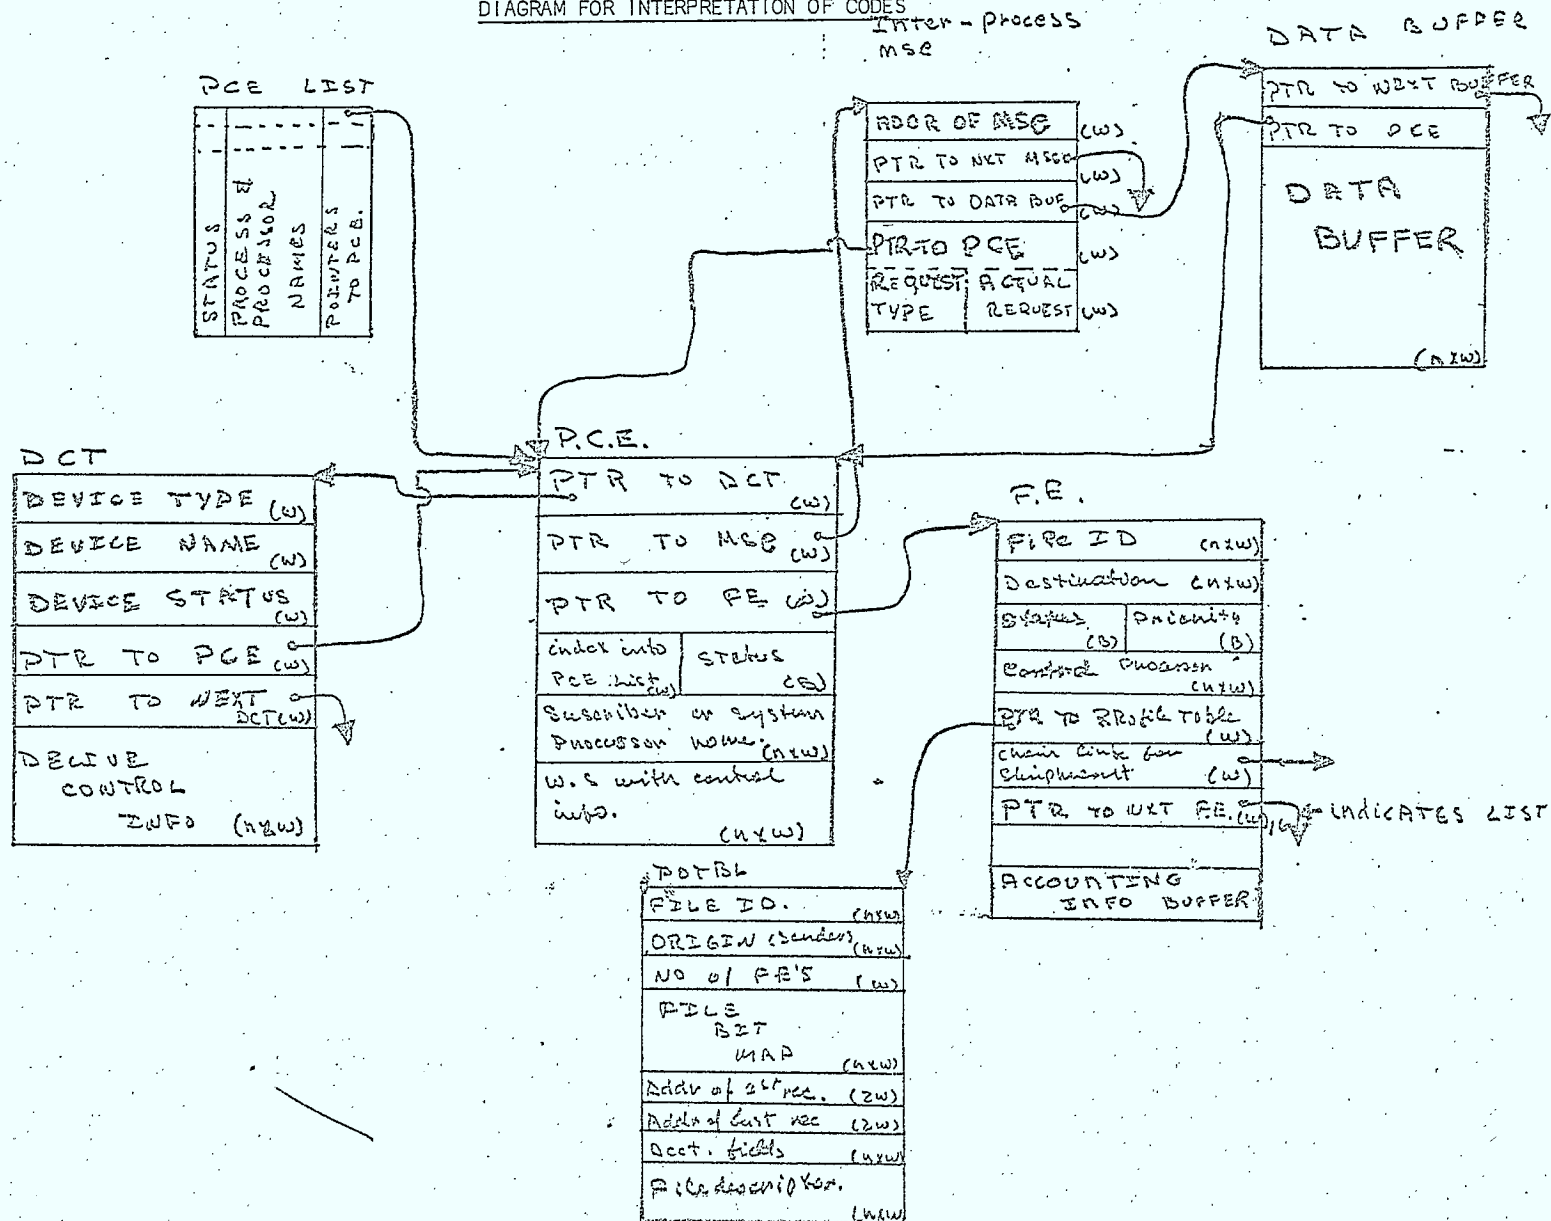 DIAGRAM FOR INTERPRETATION OF CODES
Inter-process
MSG
DATA BUFFER
PCE LIST
STATUS
PROCESS &
PROCESSOR
NAMES
POINTERS
TO PCE.
ADDR OF MSG (W)
PTR TO NXT MSG (W)
PTR TO DATA BUF (W)
PTR TO PCE (W)
REQUEST TYPE
ACTUAL REQUEST (W)
PTR TO NEXT BUFFER
PTR TO PCE
DATA
BUFFER
(nxw)
DCT
DEVICE TYPE (W)
DEVICE NAME (W)
DEVICE STATUS (W)
PTR TO PCE (W)
PTR TO NEXT
DCT (W)
DEVICE
CONTROL
INFO (nxw)
P.C.E.
PTR TO DCT (W)
PTR TO MSG (W)
PTR TO FE (W)
index into
PCE List (W)
Status
(B)
Suscriber or system
Processor name. (nxw)
W.S with control
info.
(nxw)
F.E.
File ID (nxw)
Destination (nxw)
Status (B)
Priority (B)
Control Processor
(nxw)
PTR TO PROfile Table
(W)
chain link for
(W)
PTR TO NXT F.E. (W)
INDICATES LIST
ACCOUNTING
INFO BUFFER
FILE ID. (nxw)
ORIGIN (Senders) (nxw)
NO of FE'S (W)
FILE
BIT
MAP
(nxw)
Addr of 1st rec. (2W)
Addr of last rec (2W)
Acct. fields (nxw)
File descriptor.
(nxw)